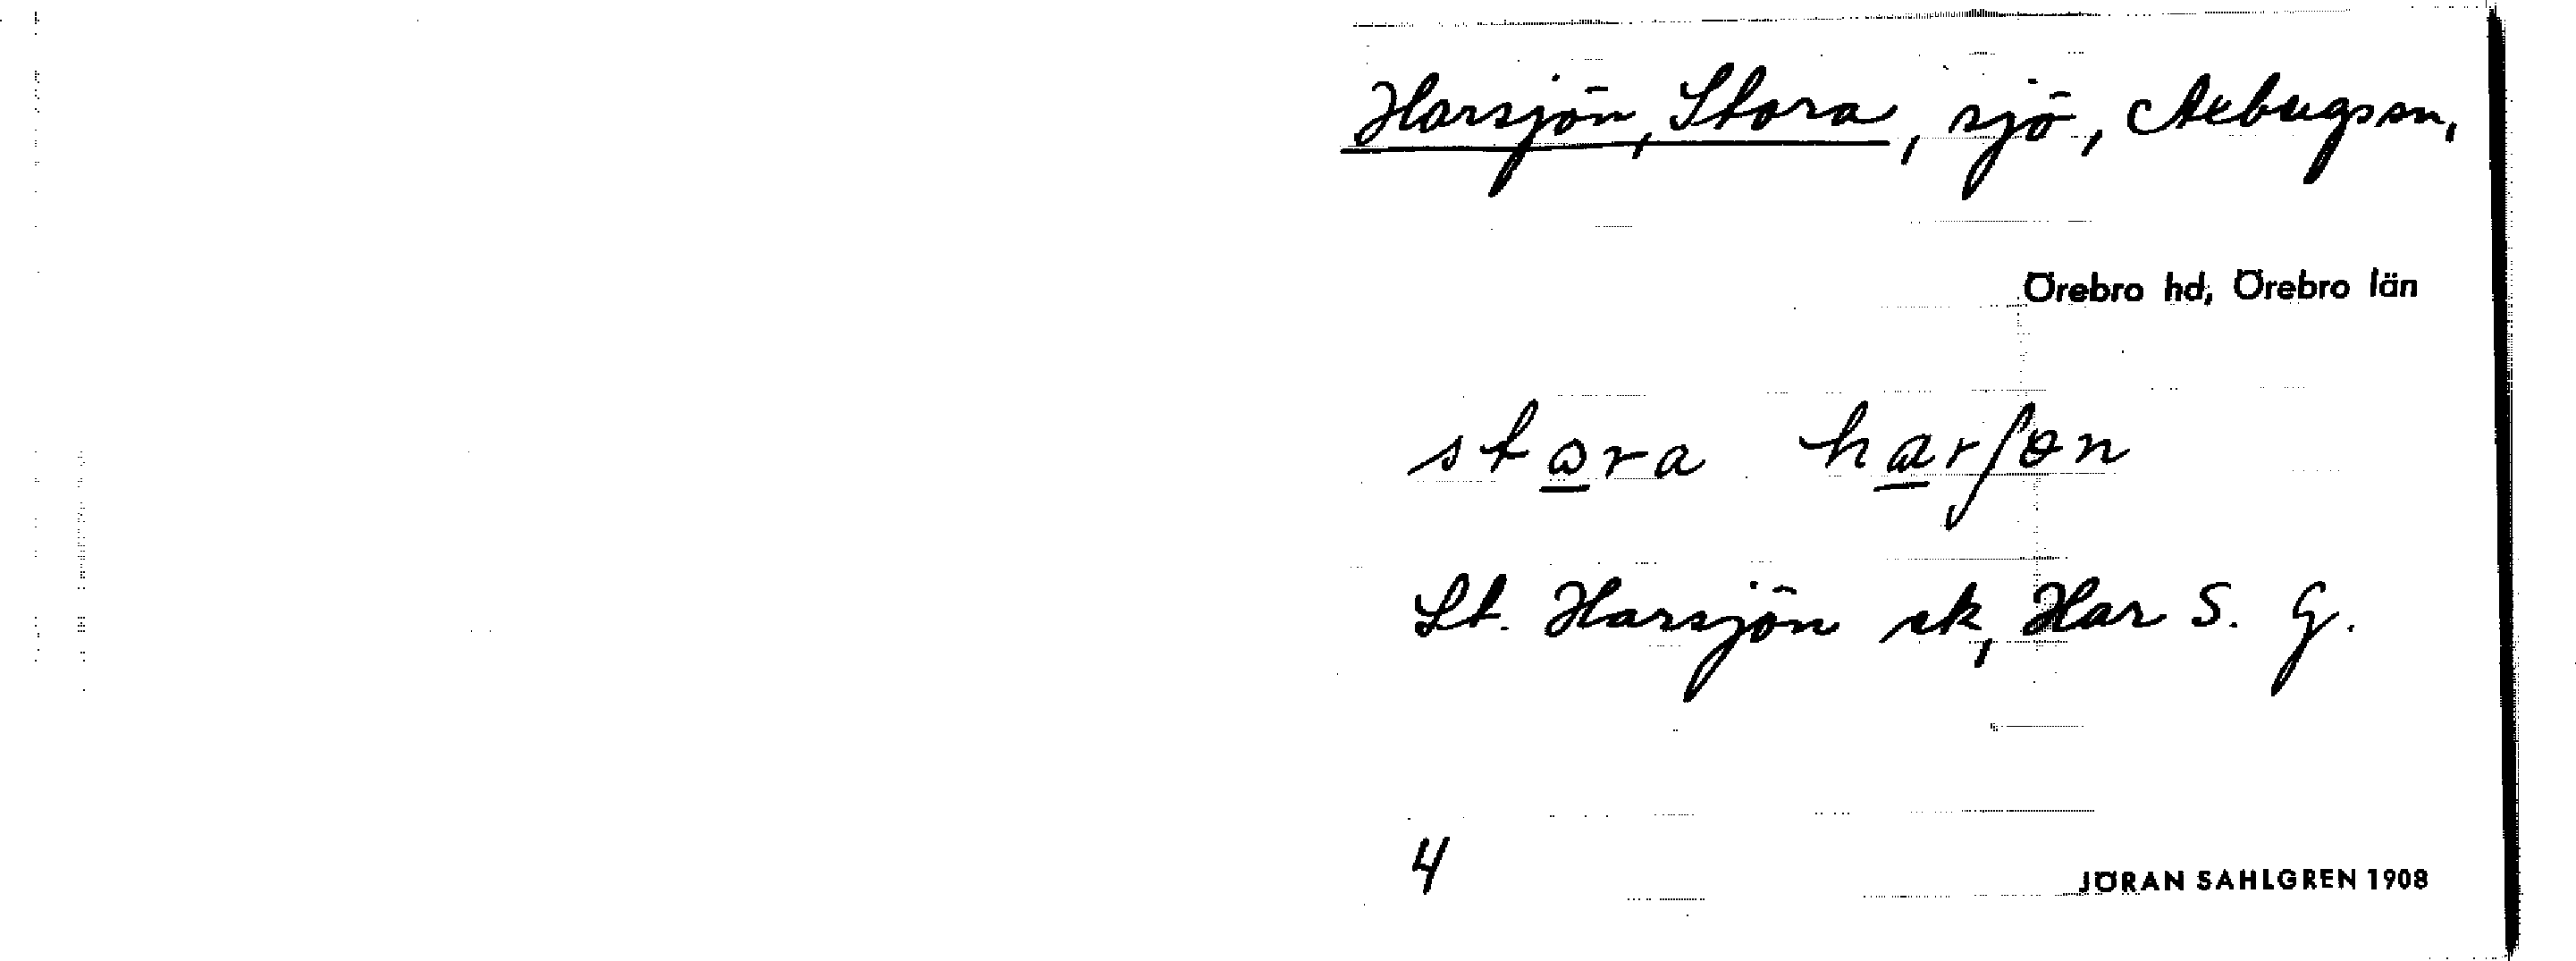 Harsjön, Stora, sjö, Axbergs sn,
Örebro hd, Örebro län
stora harʃɵn
St. Harsjön ek, Har S. G.
4
JÖRAN SAHLGREN 1908